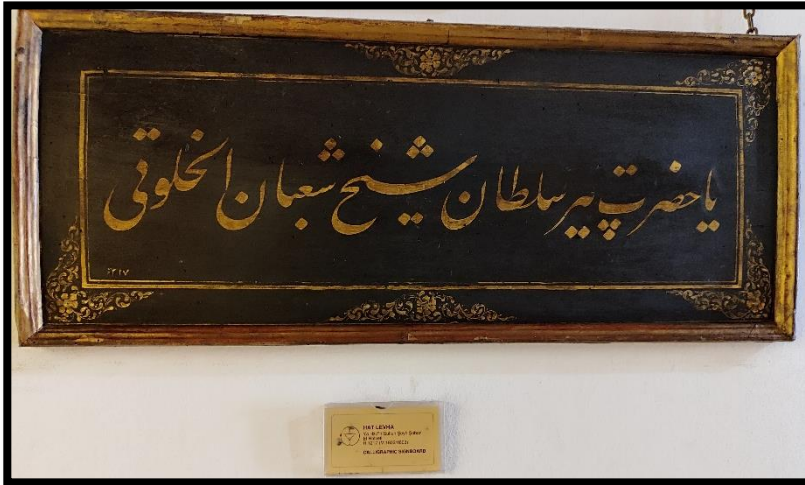 يا حضرت پير سلطان شيخ شعبان الخلوتى
١٢١٧
HAT LEVHA
CALLIGRAPHIC SIGNBOARD